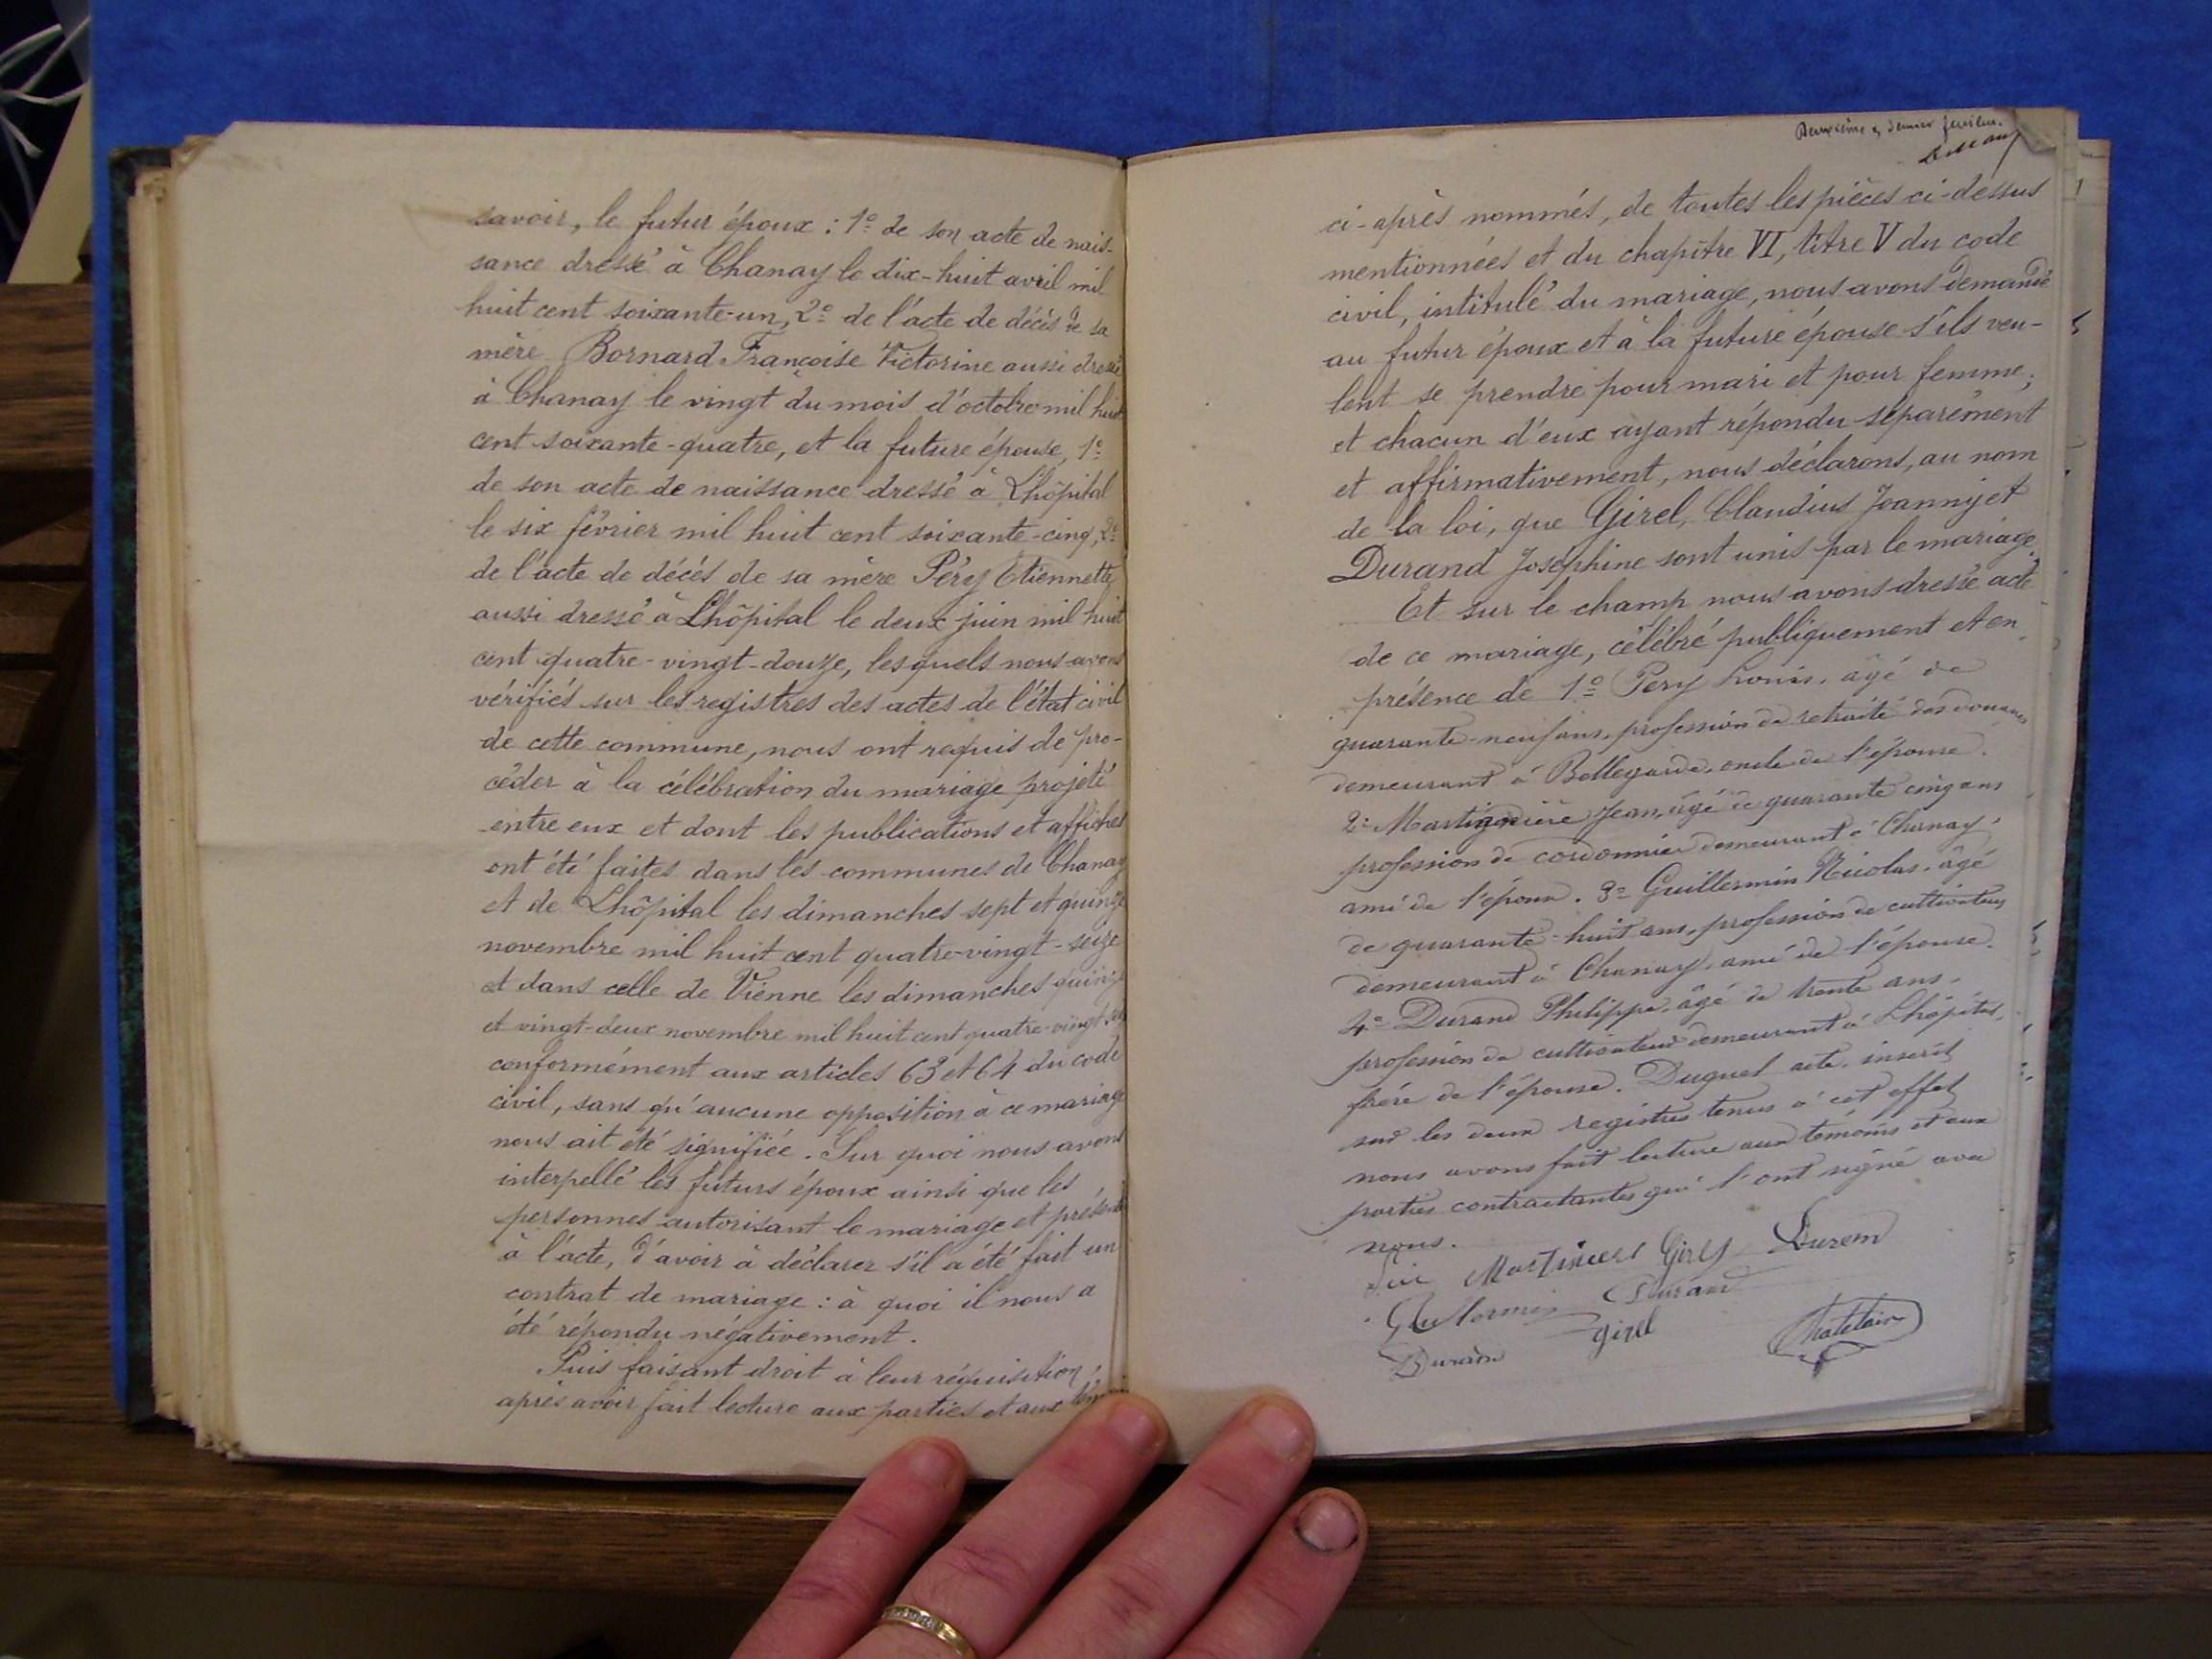 savoir, le futur époux : 1º de son acte de nais-
sance dressé à Chanay le dix-huit avril mil
huit cent soixante-un, 2º de l'acte de décès de sa
mère Bornard Françoise Victorine aussi dressé
à Chanay le vingt du mois d'octobre mil huit
cent soixante-quatre, et la future épouse, 1º
de son acte de naissance dressé à Lhôpital
le six février mil huit cent soixante-cinq, 2º
de l'acte de décès de sa mère Péry Etiennette
aussi dressé à Lhôpital le deux juin mil huit
cent quatre-vingt-douze, lesquels nous avons
vérifiés sur les registres des actes de l'état civil
de cette commune, nous ont requis de pro-
céder à la célébration du mariage projeté
entre eux et dont les publications et affiches
ont été faites dans les communes de Chanay
et de Lhôpital les dimanches sept et quinze
novembre mil huit cent quatre-vingt-seize
et dans celle de Vienne les dimanches quinze
et vingt-deux novembre mil huit cent quatre-vingt
conformément aux articles 63 et 64 du code
civil, sans qu'aucune opposition à ce mariage
nous ait été signifiée. Sur quoi nous avons
interpellé les futurs époux ainsi que les
personnes autorisant le mariage et présents
à l'acte, d'avoir à déclarer s'il a été fait un
contrat de mariage : à quoi il nous a
été répondu négativement.
Puis faisant droit à leur réquisition,
après avoir fait lecture aux parties et aux
Deuxième & dernier feuillet.
ci-après nommés, de toutes les pièces ci-dessus
mentionnées et du chapitre VI, titre V du code
civil, intitulé du mariage, nous avons demandé
au futur époux et à la future épouse s'ils veu-
lent se prendre pour mari et pour femme;
et chacun d'eux ayant répondu séparément
et affirmativement, nous déclarons, au nom
de la loi, que Girel, Claudius Joanny et
Durand Joséphine sont unis par le mariage.
Et sur le champ nous avons dressé acte
de ce mariage, célébré publiquement et en
présence de 1º Pery Louis, âgé de
quarante-neuf ans, profession de retraité des douanes
demeurant à Bellegarde, oncle de l'épouse.
2º Jean, âgé de quarante cinq ans
profession de cordonnier demeurant à Chanay,
ami de l'époux. 3º Guillermin Nicolas, âgé
de quarante-huit ans, profession de cultivateur
demeurant à Chanay, ami de l'épouse.
4º Durand Philippe, âgé de trente ans,
profession de cultivateur demeurant à Lhôpital,
frère de l'épouse. Duquel acte, inscrit
sur les deux registres tenus à cet effet
nous avons fait lecture aux témoins et aux
parties contractantes qui l'ont signé avec
nous.
Girel
Durand
Girel
Durand
Chatelain